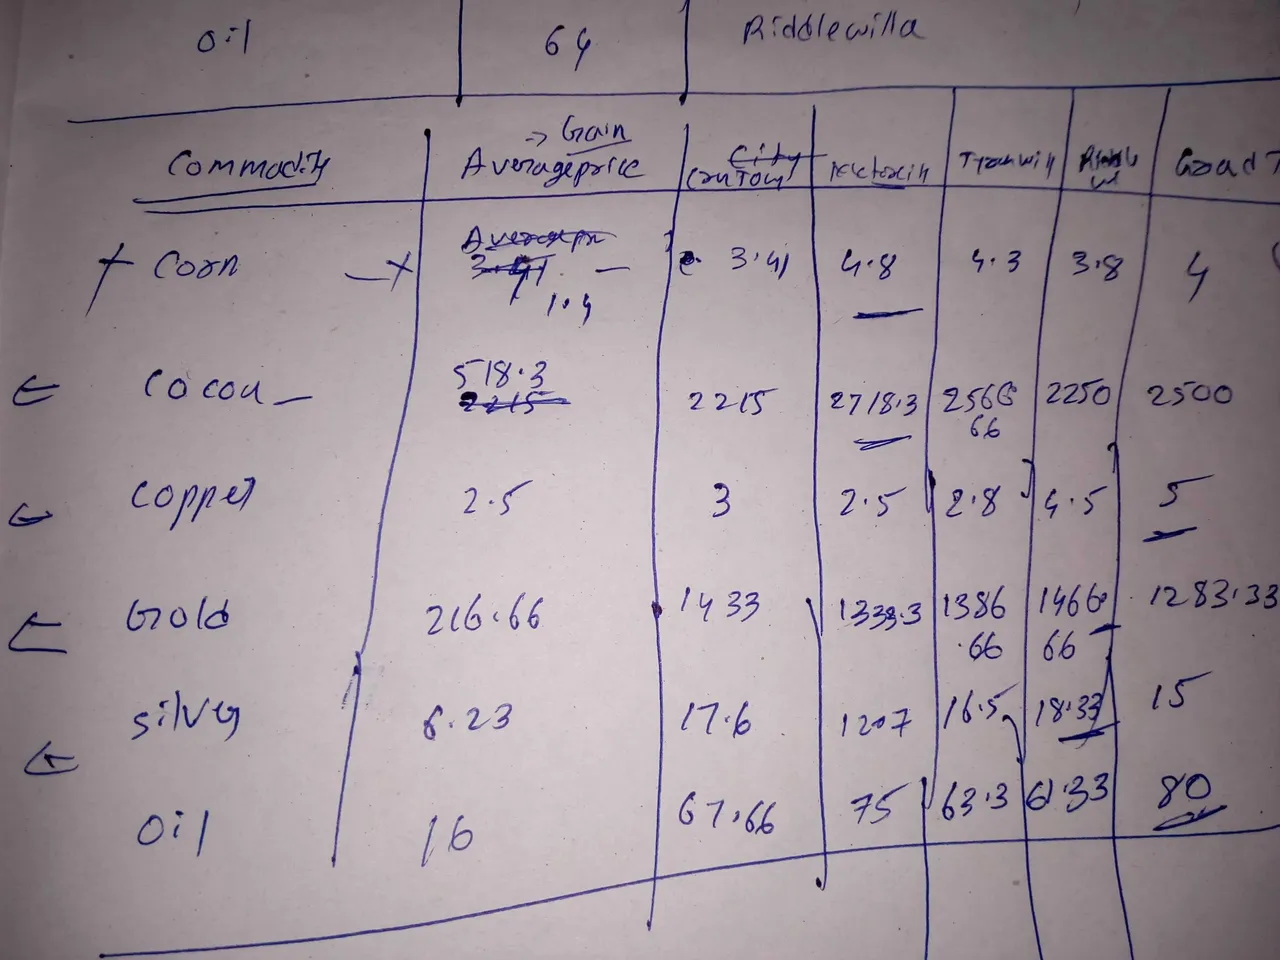 Oil 64 Riddlewilla
→ Grain
Commodity Averageprice City Tranwill Grad
Corn 3.41 4.8 4.3 3.8 4
1.4
Cocou 518.3 2215 2718.3 2566 2250 2500
2215 66
Copper 2.5 3 2.5 2.8 4.5 5
Gold 216.66 1433 1333.3 1386 1466. 1283.33
.66 66
Silver 6.23 17.6 1207 16.5 18.33 15
Oil 16 67.66 75 63.3 61.33 80